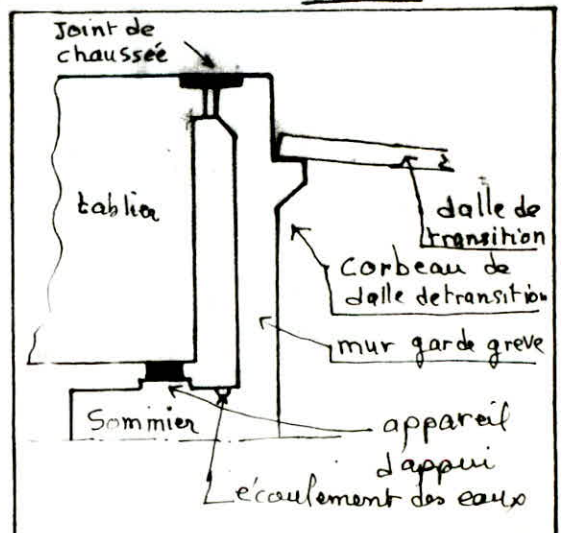 Joint de
chaussée
tablier
dalle de
transition
corbeau de
dalle detransition
mur garde greve
Sommier
appareil
d'appui
écoulement des eaux